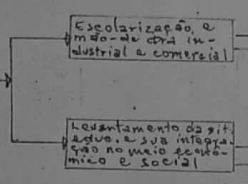 Escolarização, e
mão-de obra in-
dustrial e comercial
Levantamento da sit.
educ. e sua integra-
ção no meio econô-
mico e social